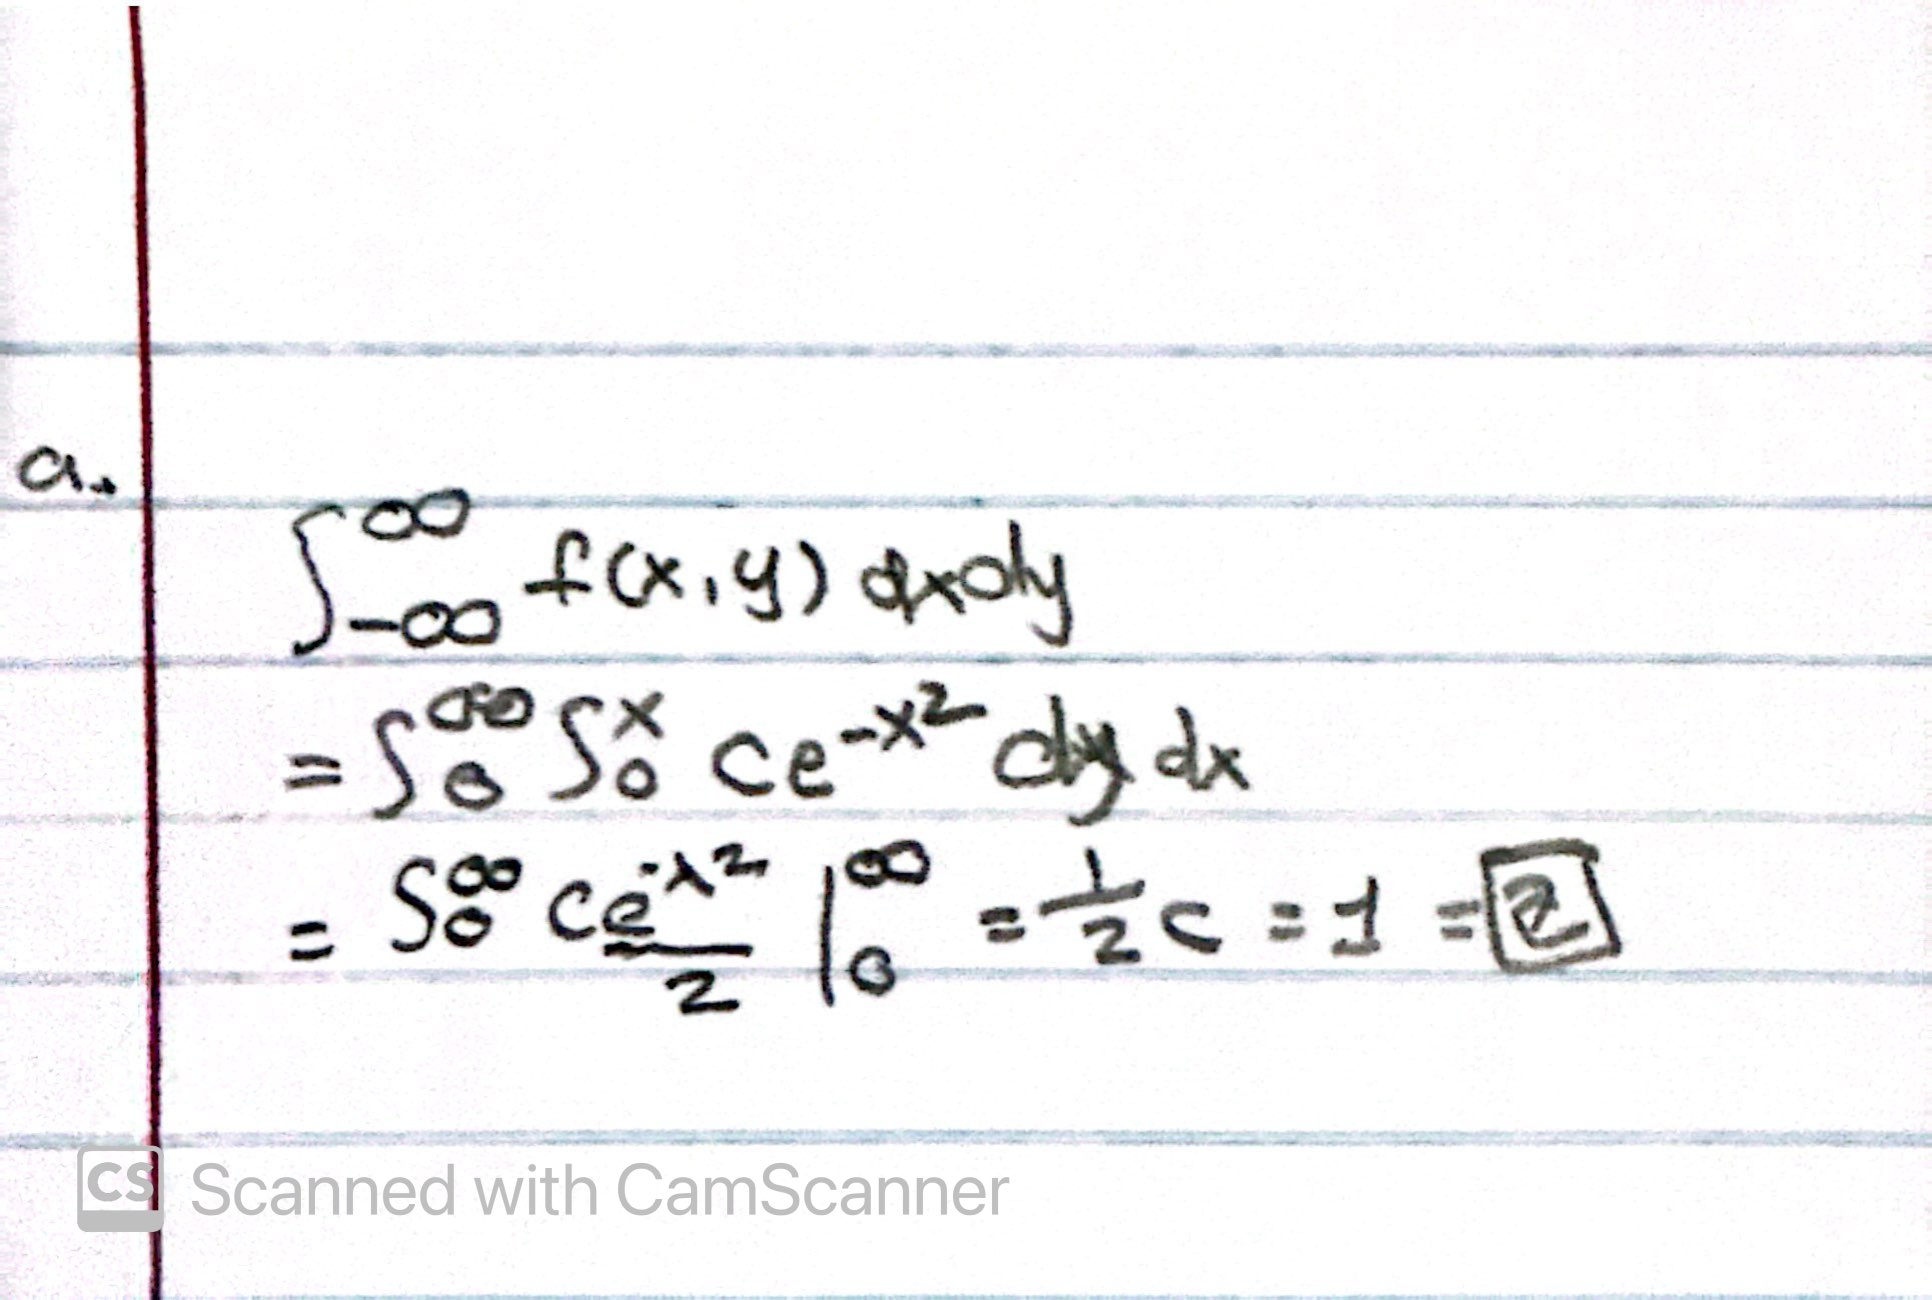 a.
∫_{-∞}^{∞} f(x,y) dxdy
= ∫_0^∞ ∫_0^x ce^{-x^2} dy dx
= ∫_0^∞ ce^{-x^2}/2 |_0^∞ = 1/2 c = 1 = 2
CS Scanned with CamScanner